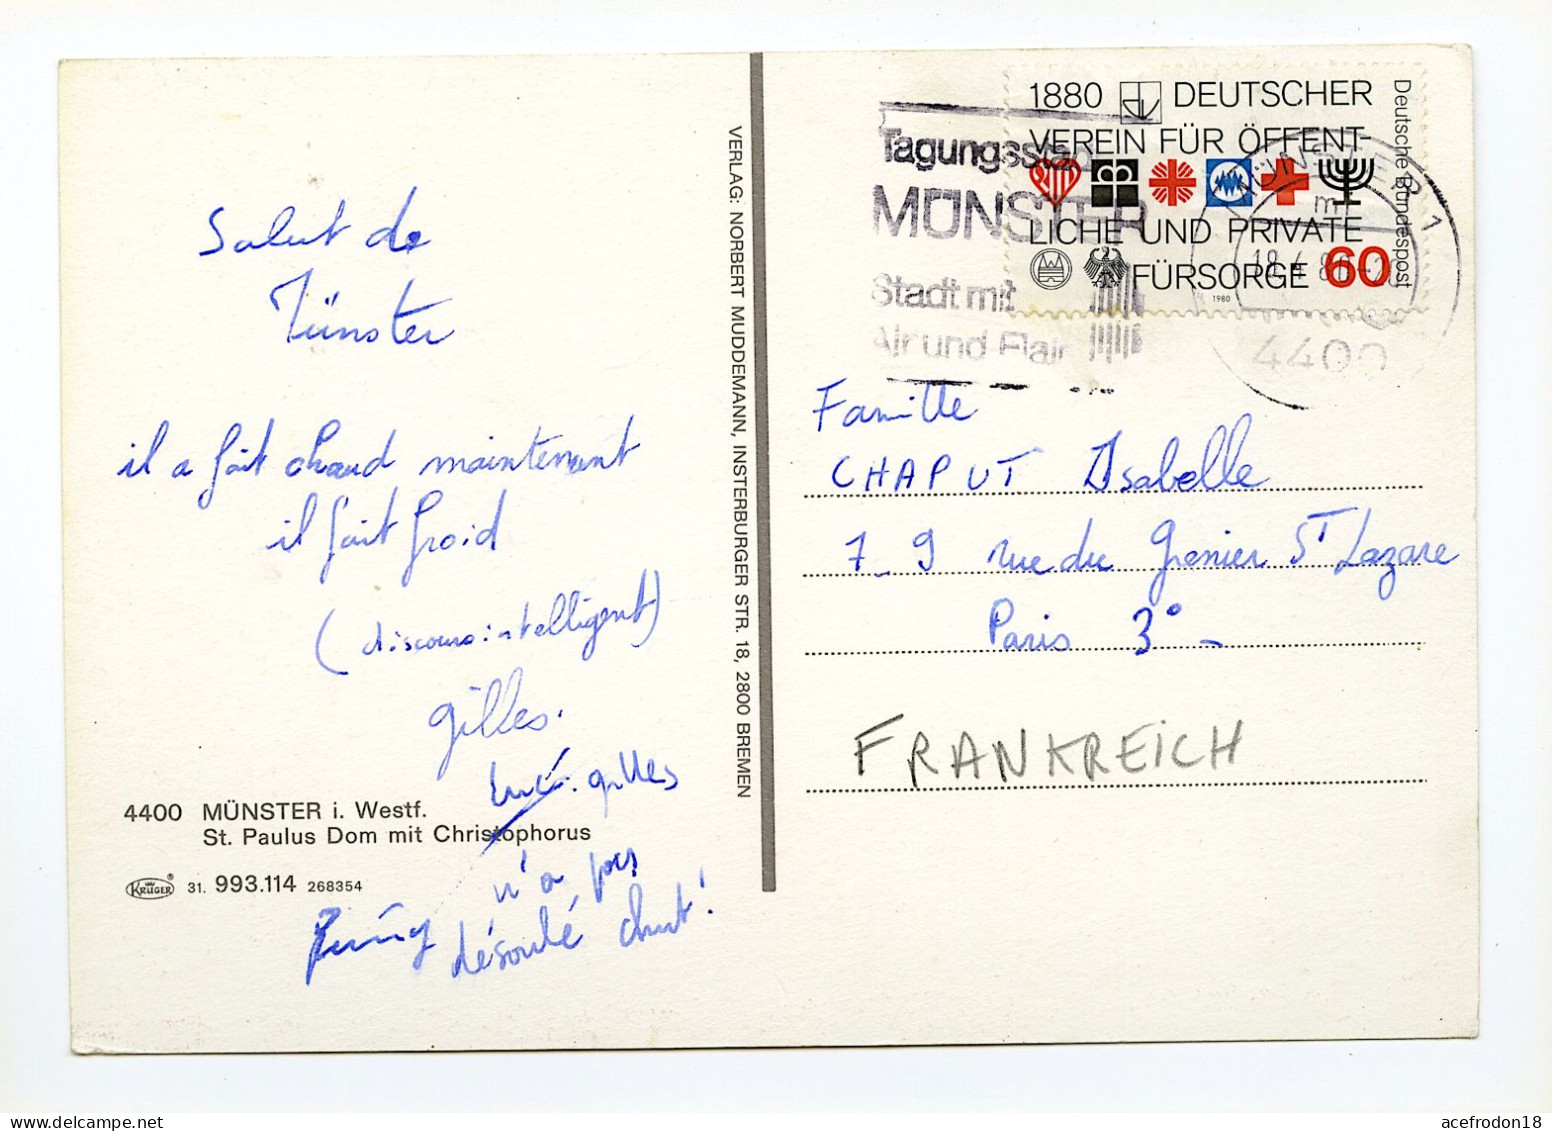 Salut de
Münster
il a fait chaud maintenant
il fait froid
(discours intelligent)
gilles.
Luc. gilles
n'a pas
désoulé chut!
4400 MÜNSTER i. Westf.
St. Paulus Dom mit Christophorus
KRÜGER ® 31. 993.114 268354
VERLAG: NORBERT MUDDEMANN, INSTERBURGER STR. 18, 2800 BREMEN
1880 DEUTSCHER
VEREIN FÜR ÖFFENT-
LICHE UND PRIVATE
FÜRSORGE 60
1980
Deutsche Bundespost
Tagungssta
MÜNSTER
Stadt mit
Air und Flair
MÜNSTER 1
4400
Famille
CHAPUT Isabelle
7-9 rue du Grenier ST Lazare
Paris 3°
FRANKREICH
acefrodon18